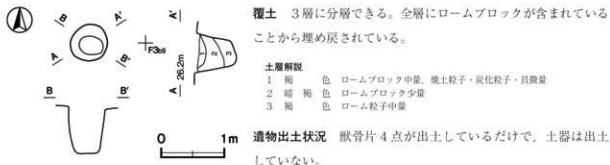 B A' A'
F3b9
A B' A 26.2m
1 2 3
B B'
0 1m
覆土 3層に分層できる。全層にロームブロックが含まれている
ことから埋め戻されている。
土層解説
1 褐 色 ロームブロック中量，焼土粒子・炭化粒子・貝微量
2 暗 褐 色 ロームブロック少量
3 褐 色 ローム粒子中量
遺物出土状況 獣骨片4点が出土しているだけで，土器は出土
していない。